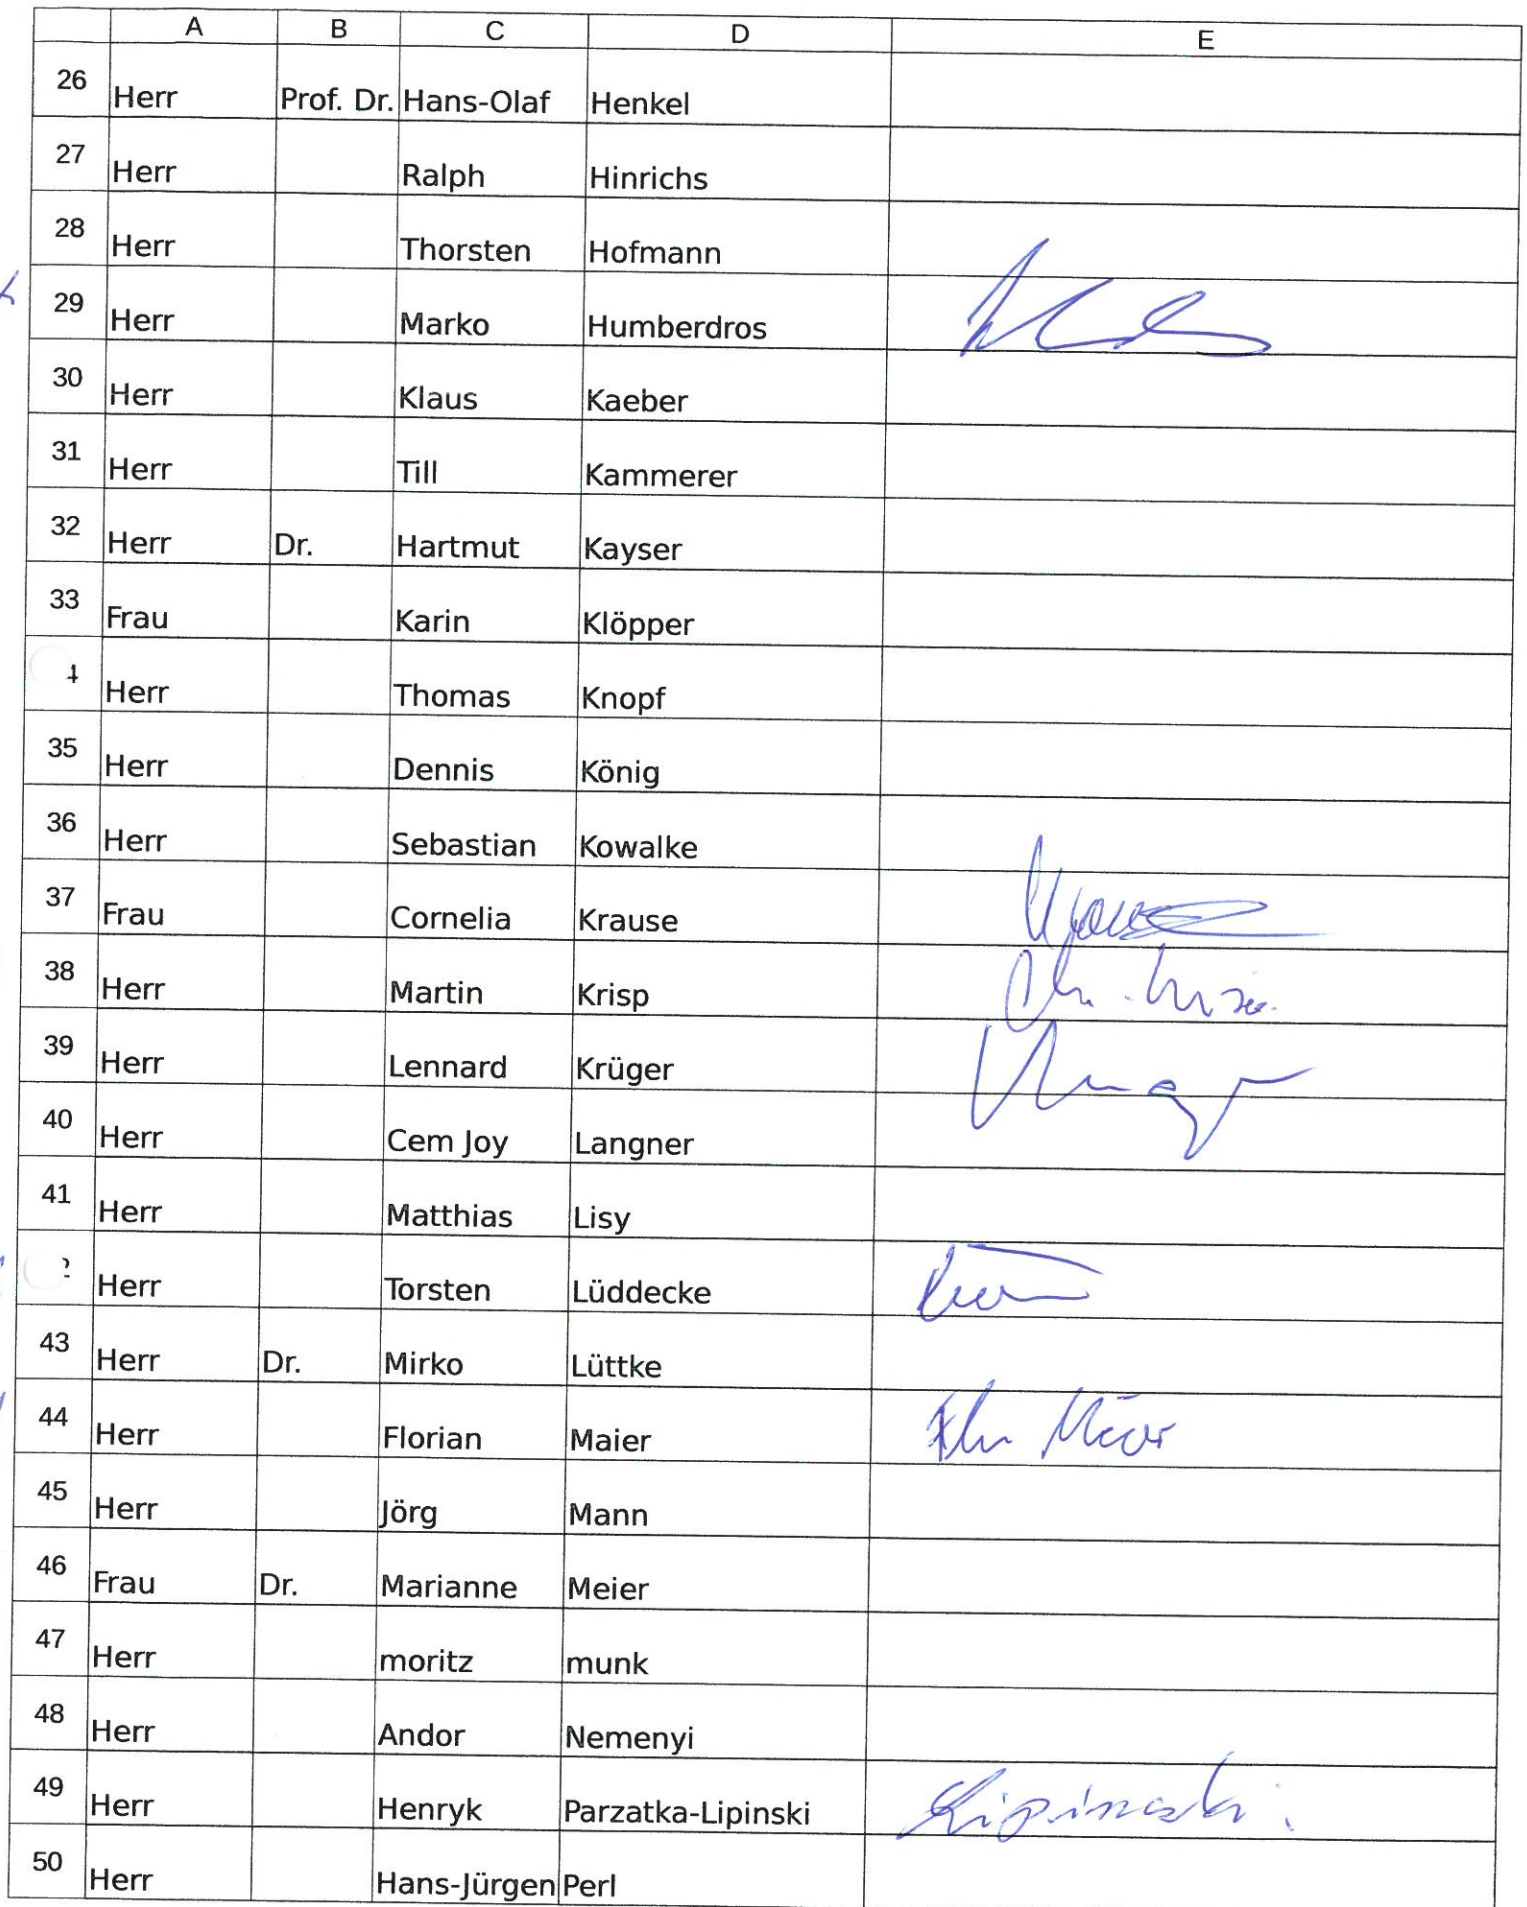 A B C D E
26 Herr Prof. Dr. Hans-Olaf Henkel
27 Herr Ralph Hinrichs
28 Herr Thorsten Hofmann
29 Herr Marko Humberdros
30 Herr Klaus Kaeber
31 Herr Till Kammerer
32 Herr Dr. Hartmut Kayser
33 Frau Karin Klöpper
4 Herr Thomas Knopf
35 Herr Dennis König
36 Herr Sebastian Kowalke
37 Frau Cornelia Krause
38 Herr Martin Krisp
39 Herr Lennard Krüger
40 Herr Cem Joy Langner
41 Herr Matthias Lisy
2 Herr Torsten Lüddecke
43 Herr Dr. Mirko Lüttke
44 Herr Florian Maier
45 Herr Jörg Mann
46 Frau Dr. Marianne Meier
47 Herr moritz munk
48 Herr Andor Nemenyi
49 Herr Henryk Parzatka-Lipinski Lipinski.
50 Herr Hans-Jürgen Perl